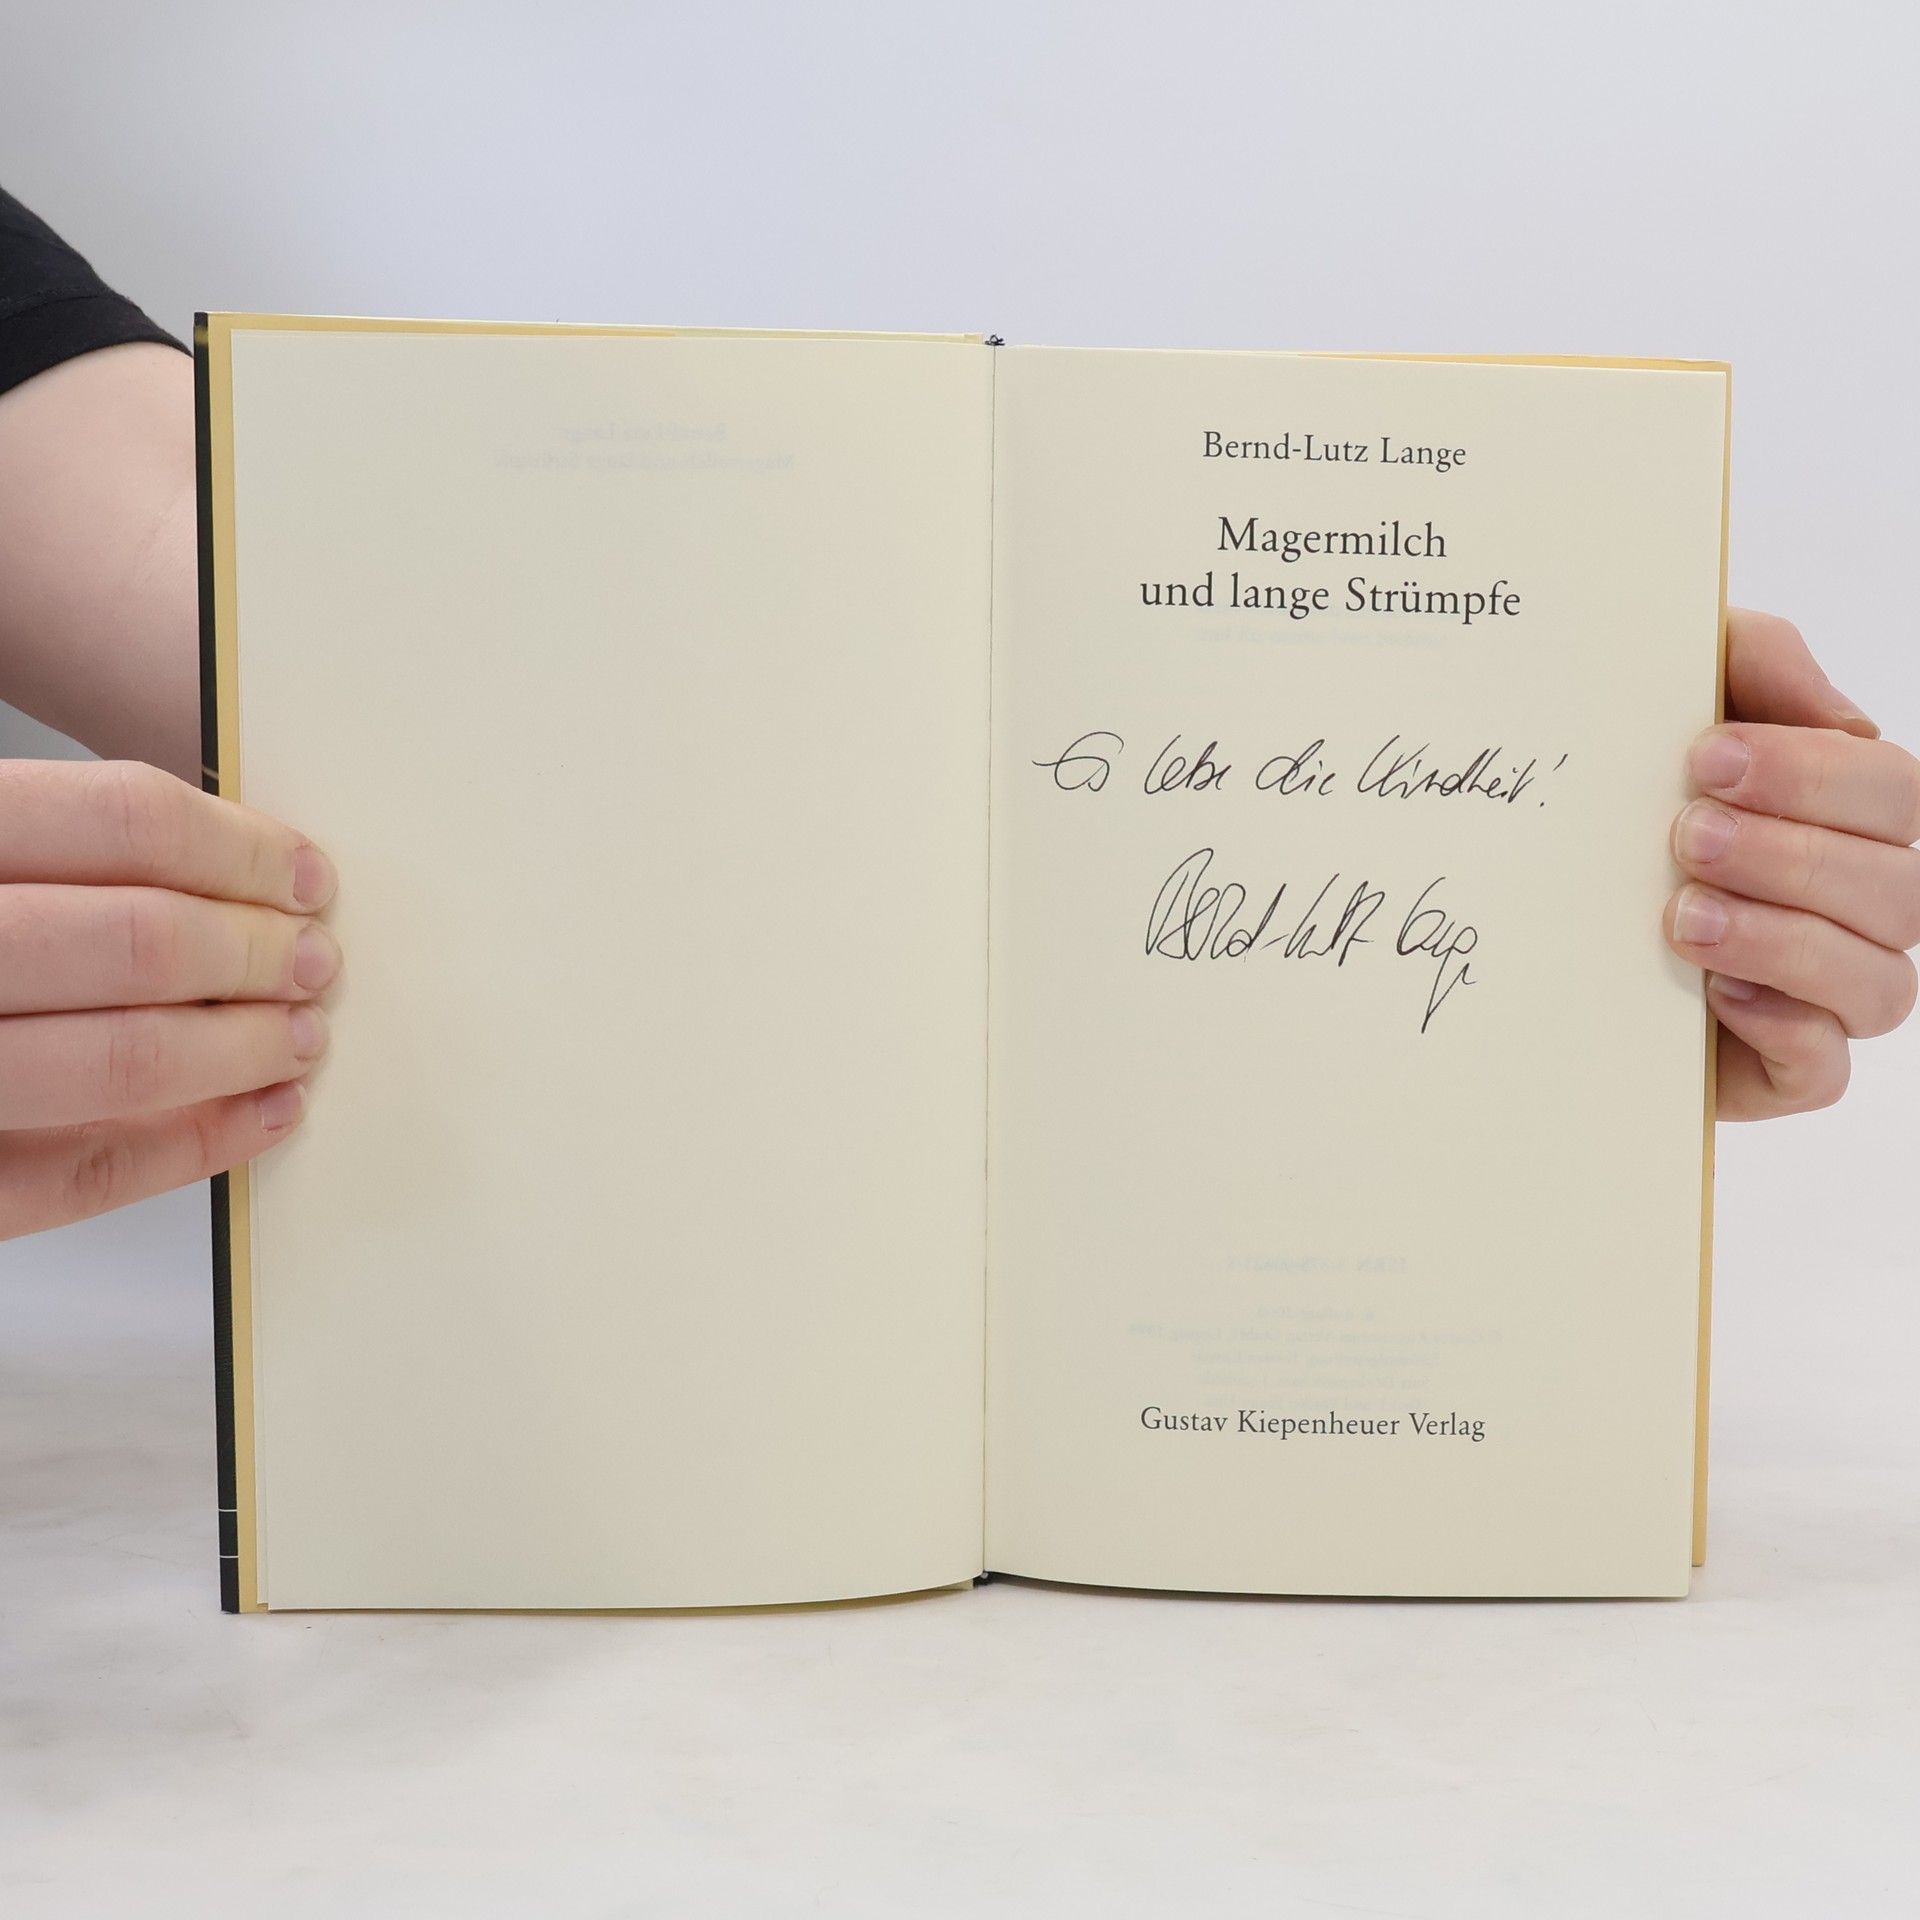 Bernd-Lutz Lange
Magermilch
und lange Strümpfe
Es lebe die Kindheit!
Bernd-Lutz Lange
Gustav Kiepenheuer Verlag